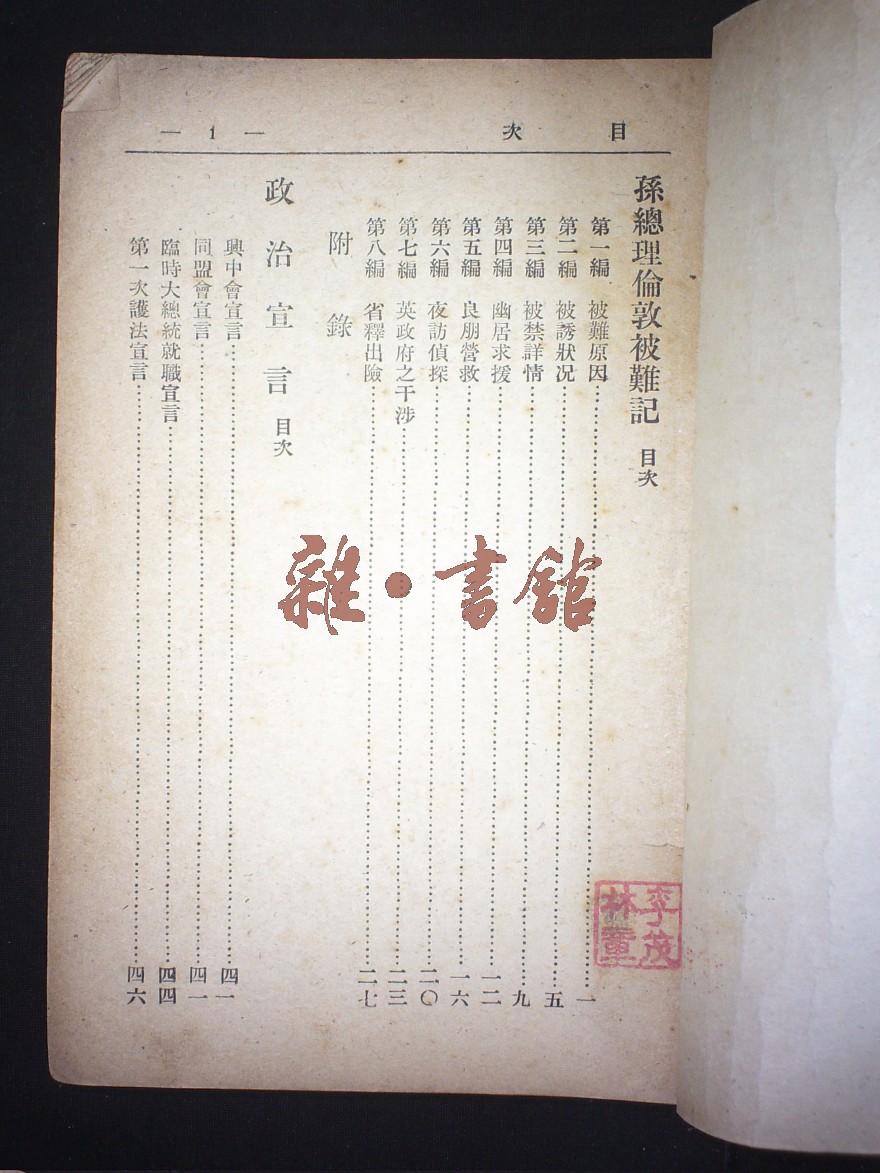 目次
— 1 —
孫總理倫敦被難記 目次
第一編 被難原因……一
第二編 被誘狀况……五
第三編 被禁詳情……九
第四編 幽居求援……一二
第五編 良朋營救……一六
第六編 夜訪偵探……二〇
第七編 英政府之干涉……二三
第八編 省釋出險……二七
附錄
政治宣言 目次
興中會宣言……四一
同盟會宣言……四一
臨時大總統就職宣言……四四
第一次護法宣言……四六
雜•書館
李茂
林章